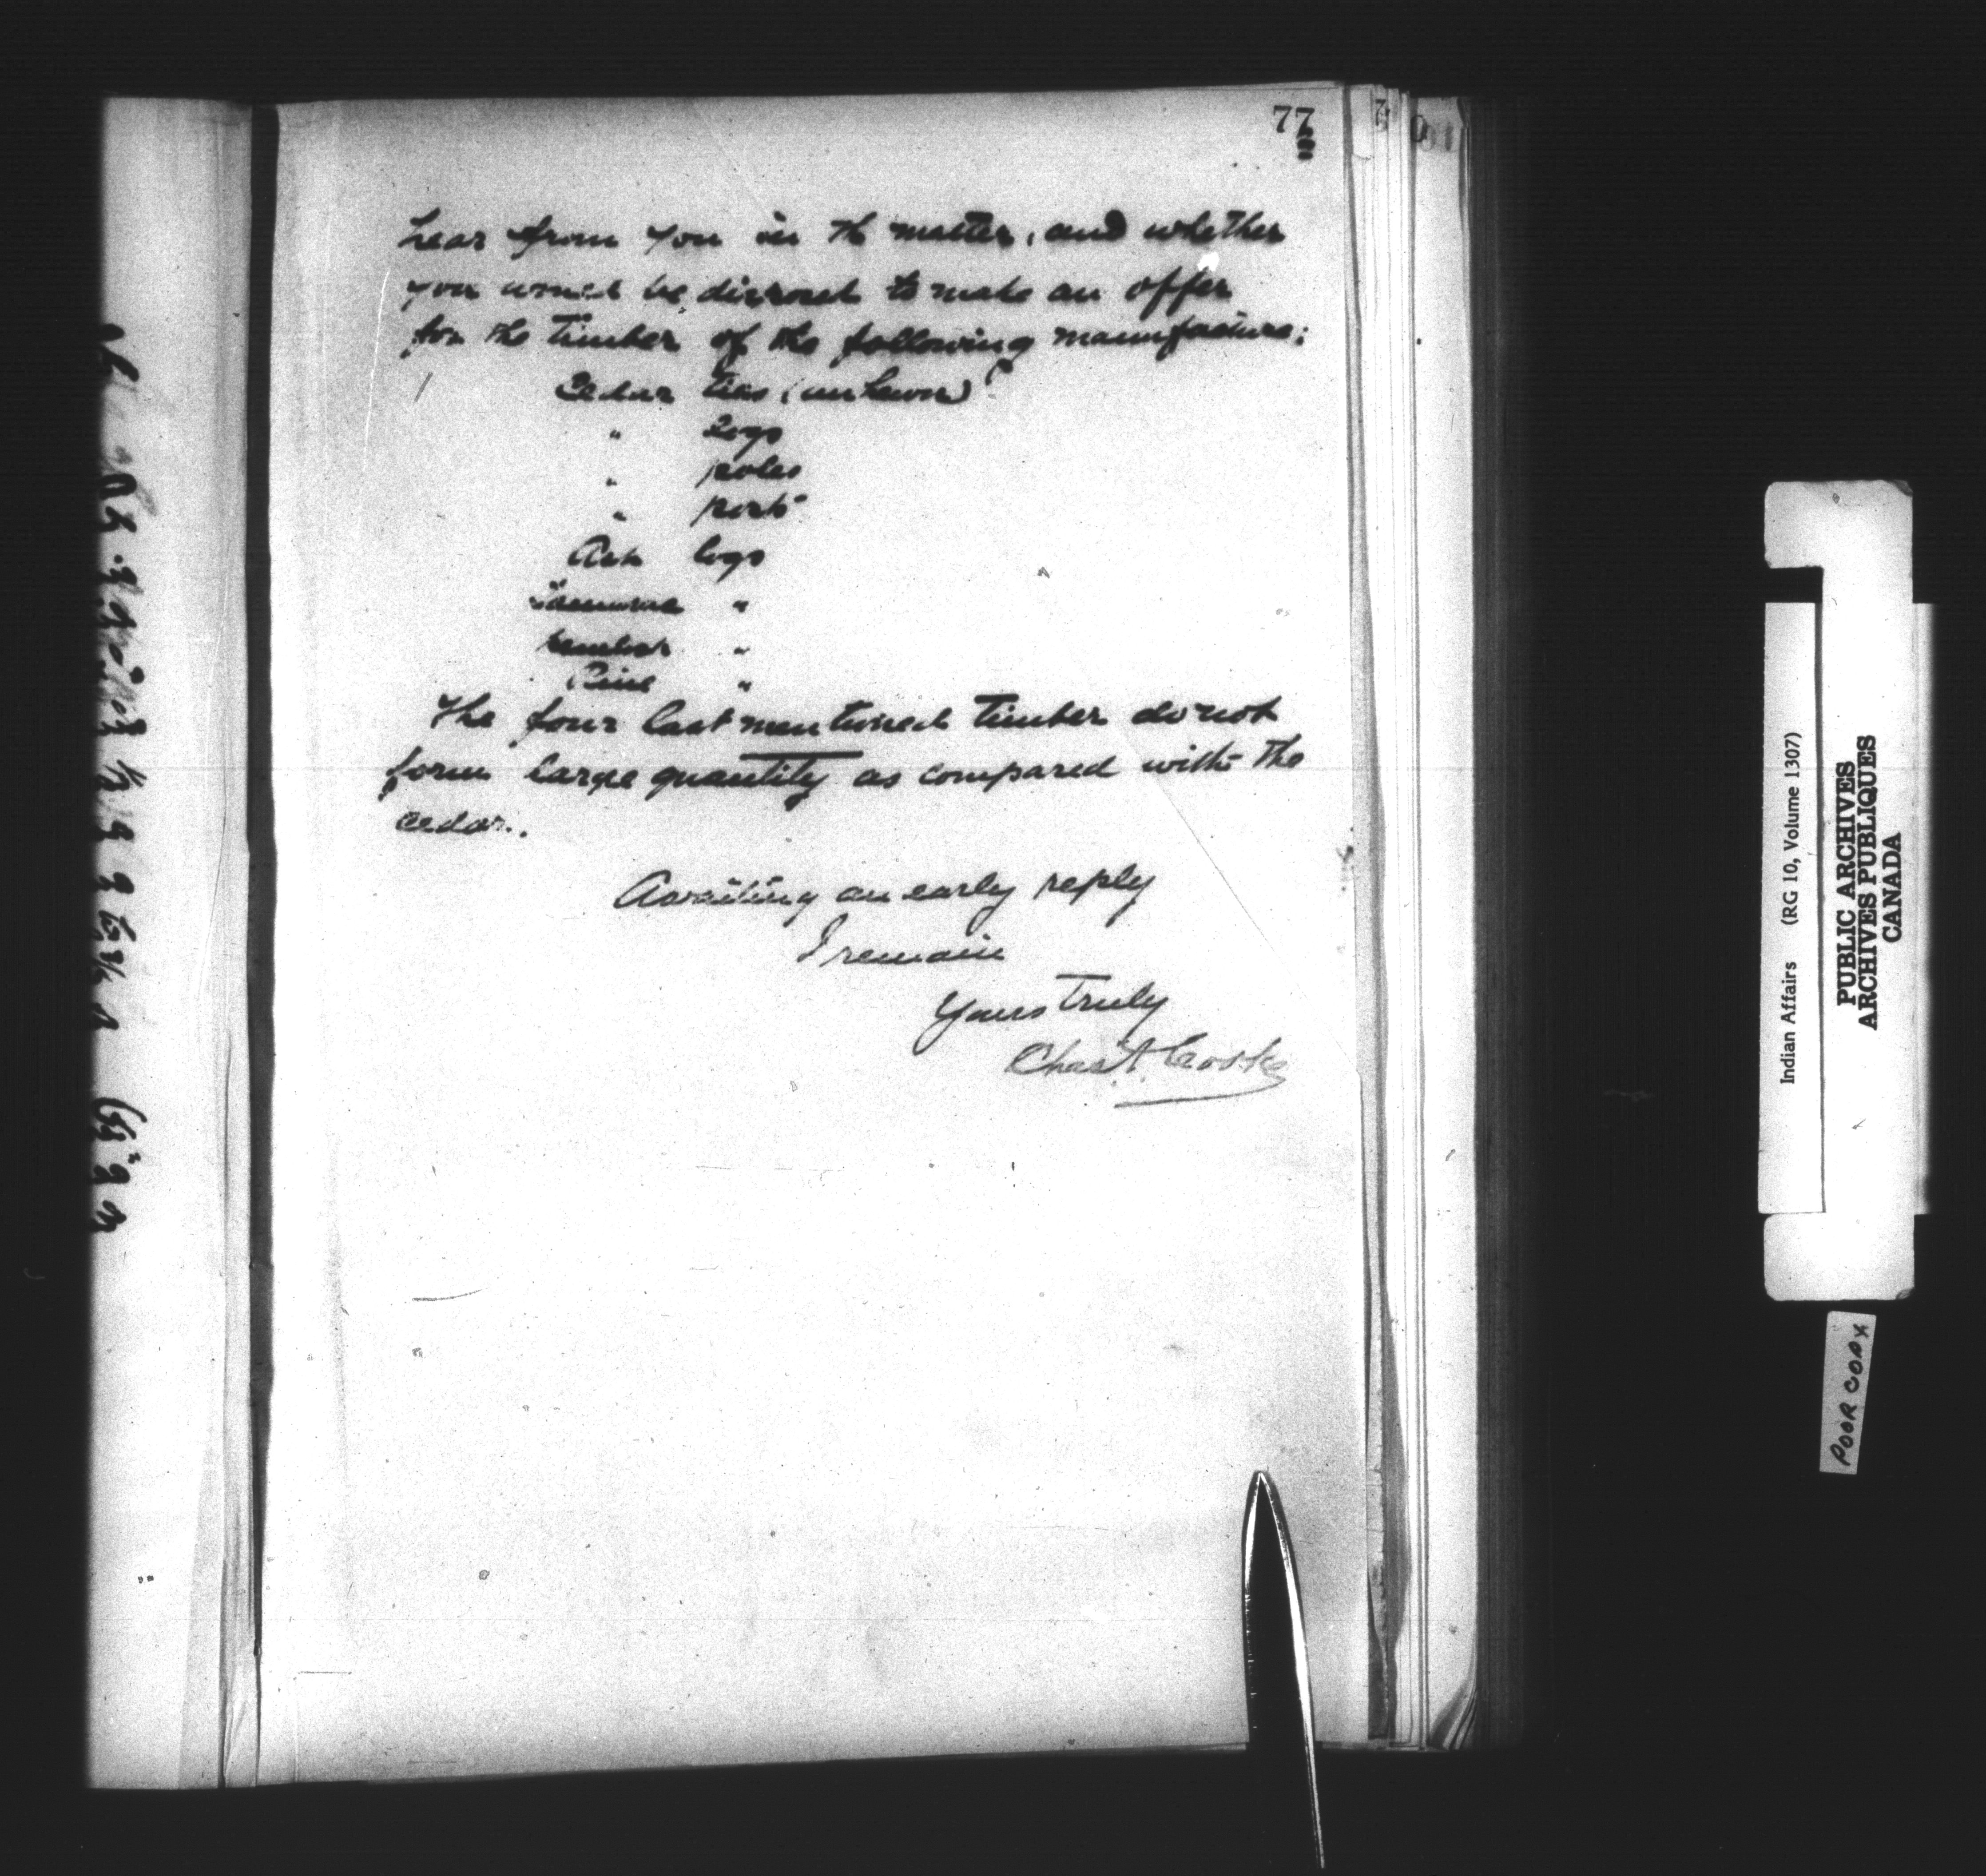 77
hear from you in the matter, and whether
you would be disposed to make an offer
for the timber of the following manufacture:
Cedar ties (unhewn)
" Logs
" poles
" posts
Ash logs
"
"
Pine "
The four last mentioned timber do not
form large quantity as compared with the
cedar.
Awaiting an early reply
I remain
Yours truly
Chas A. Cooke
Indian Affairs (RG 10, Volume 1307)
PUBLIC ARCHIVES
ARCHIVES PUBLIQUES
CANADA
POOR COPY